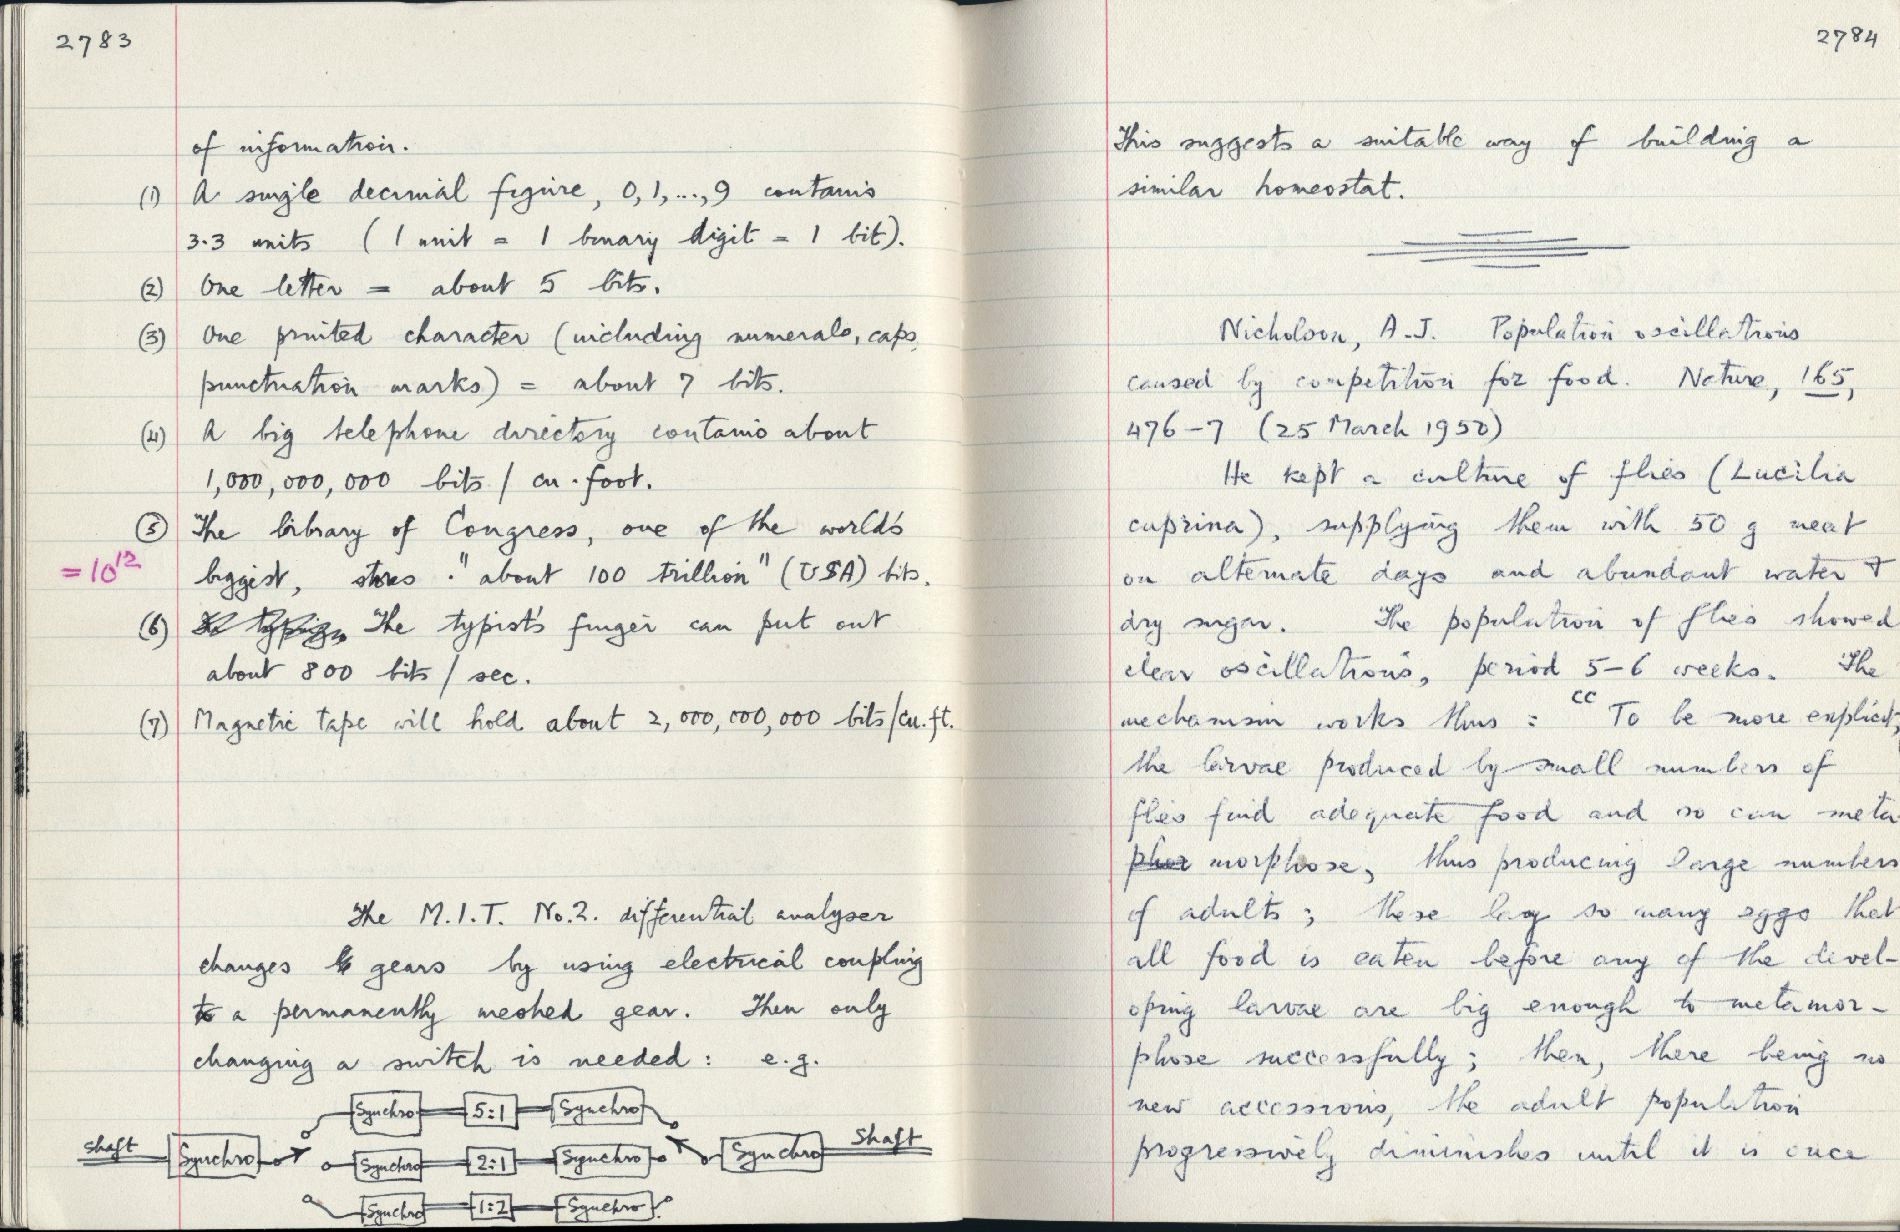 2783
of information.
(1) A single decimal figure, 0, 1, ..., 9 contains
3.3 units (1 unit = 1 binary digit = 1 bit).
(2) One letter = about 5 bits.
(3) One printed character (including numerals, caps,
punctuation marks) = about 7 bits.
(4) A big telephone directory contains about
1,000,000,000 bits / cu. foot.
(5) The library of Congress, one of the world's
= 10¹² biggest, stores "about 100 trillion" (USA) bits.
(6) The typist's finger can put out
about 800 bits / sec.
(7) Magnetic tape will hold about 2,000,000,000 bits/cu.ft.
The M.I.T. No.2. differential analyser
changes gears by using electrical coupling
to a permanently meshed gear. Then only
changing a switch is needed: e.g.
Synchro 5:1 Synchro
Shaft Synchro Synchro 2:1 Synchro Synchro Shaft
Synchro 1:2 Synchro
2784
This suggests a suitable way of building a
similar homeostat.
Nicholson, A.J. Population oscillations
caused by competition for food. Nature, 165,
476-7 (25 March 1950)
He kept a culture of flies (Lucilia
cuprina), supplying them with 50 g meat
on alternate days and abundant water &
dry sugar. The population of flies showed
clear oscillations, period 5-6 weeks. The
mechanism works thus: "To be more explicit,
the larvae produced by small numbers of
flies find adequate food and so can meta-
morphose, thus producing large numbers
of adults; these lay so many eggs that
all food is eaten before any of the devel-
oping larvae are big enough to metamor-
phose successfully; then, there being no
new accessions, the adult population
progressively diminishes until it is once